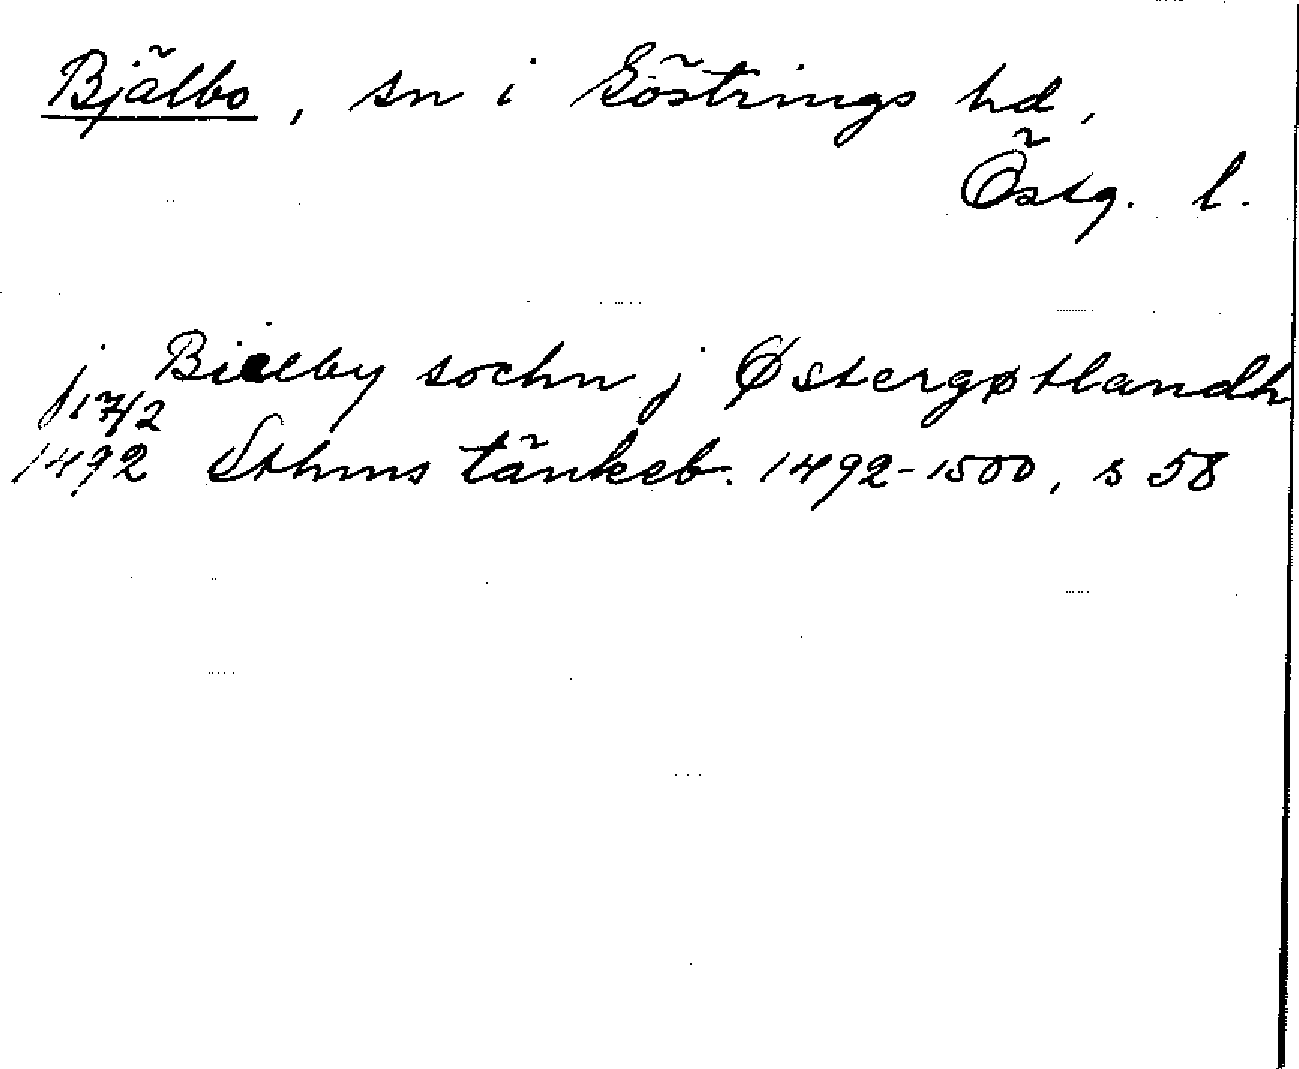 Bjälbo, sn i Göstrings hd,
Östg. l.
j Bielby sochn j Østergøtlandh
17/2
1492 Sthms tänkeb. 1492-1500, s 58